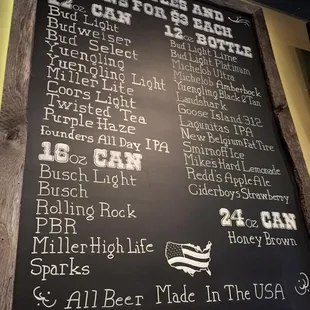 BOTTLES AND
CANS FOR $3 EACH
12oz CAN
Bud Light
Budweiser
Bud Select
Yuengling
Yuengling Light
Miller Lite
Coors Light
Twisted Tea
Purple Haze
Founders All Day IPA
16oz CAN
Busch Light
Busch
Rolling Rock
PBR
Miller High Life
Sparks
12oz BOTTLE
Bud Light Lime
Bud Light Platinum
Michelob Ultra
Michelob Amberbock
Yuengling Black & Tan
Landshark
Goose Island 312
Lagunitas IPA
New Belgium Fat Tire
Smirnoff Ice
Mike's Hard Lemonade
Redd's Apple Ale
Ciderboys Strawberry
24oz CAN
Honey Brown
All Beer Made In The USA